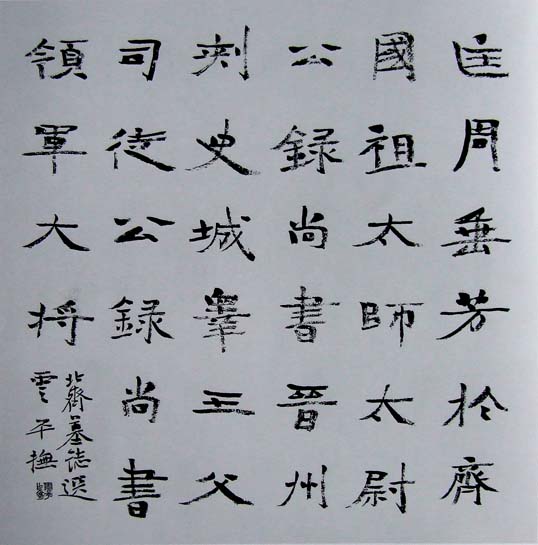 匡周垂芳於齊
國祖太師太尉
公録尚書晉州
刺史城睾王父
司徒公録尚書
領軍大将
北齊墓誌選
雲平撫